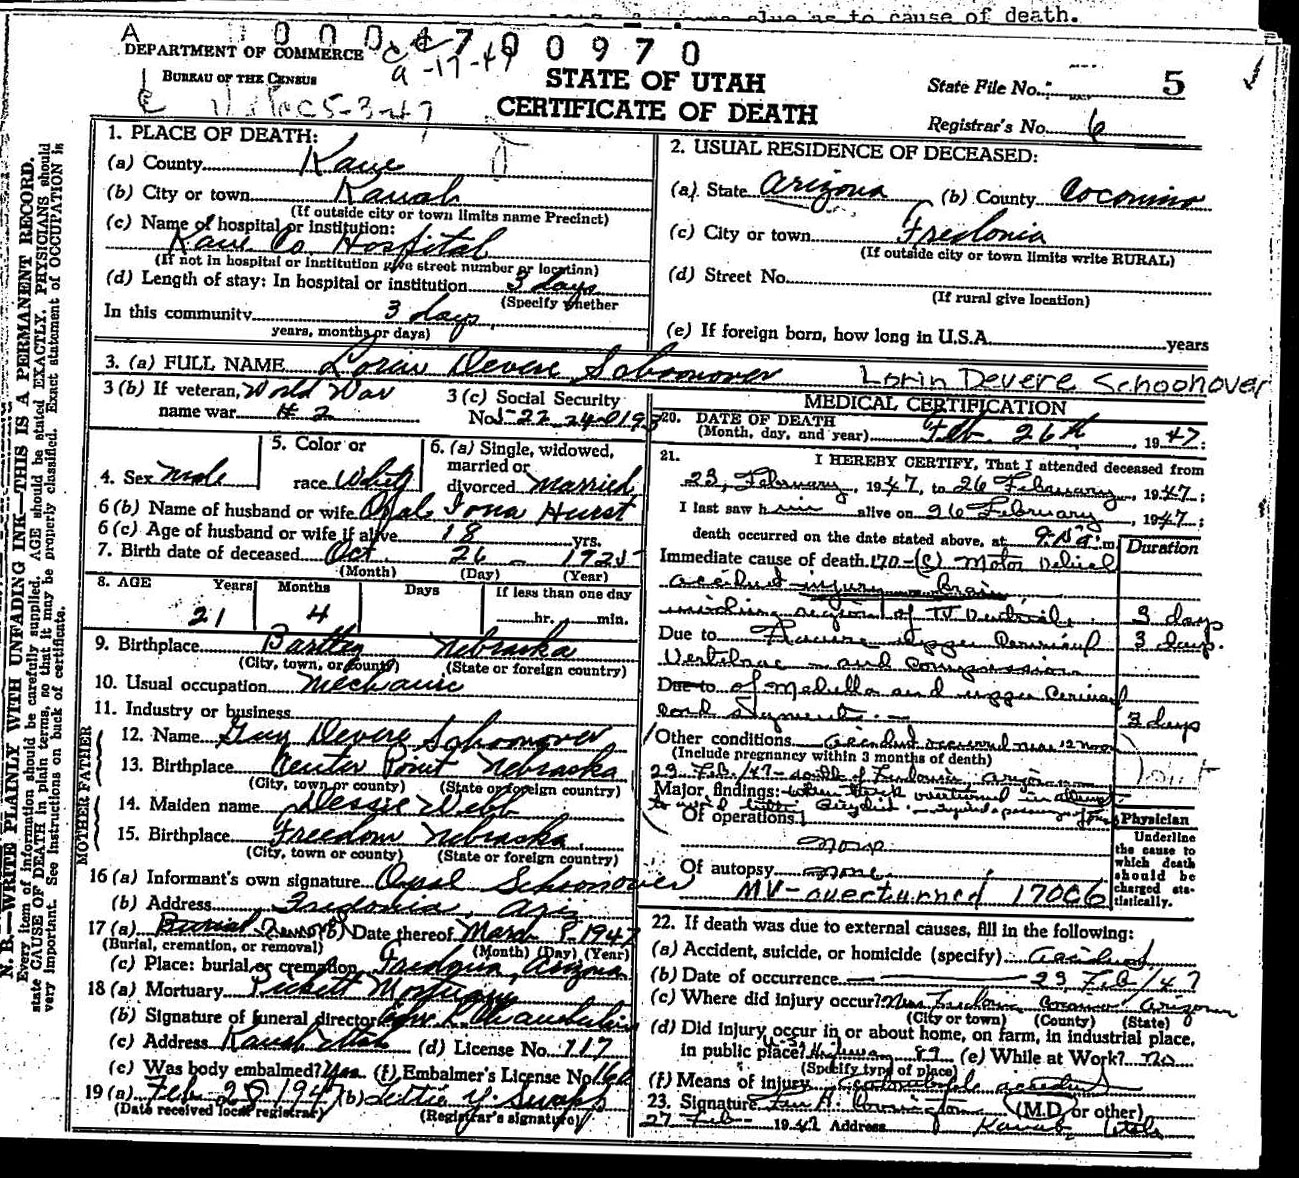 clue as to cause of death.
A 1000 4700970
DEPARTMENT OF COMMERCE
BUREAU OF THE CENSUS
STATE OF UTAH
CERTIFICATE OF DEATH
State File No. 5
Registrar's No. 6
N. B.—WRITE PLAINLY WITH UNFADING INK—THIS IS A PERMANENT RECORD.
Every item of information should be carefully supplied. AGE should be stated EXACTLY. PHYSICIANS should
state CAUSE OF DEATH in plain terms, so that it may be properly classified. Exact statement of OCCUPATION is
very important. See instructions on back of certificate.
1. PLACE OF DEATH:
(a) County Kane
(b) City or town Kanab
(If outside city or town limits name Precinct)
(c) Name of hospital or institution:
Kane Co. Hospital
(If not in hospital or institution give street number or location)
(d) Length of stay: In hospital or institution 3 days
(Specify whether
In this community 3 days
years, months or days)
2. USUAL RESIDENCE OF DECEASED:
(a) State Arizona (b) County Coconino
(c) City or town Fredonia
(If outside city or town limits write RURAL)
(d) Street No.
(If rural give location)
(e) If foreign born, how long in U.S.A. years
3. (a) FULL NAME Lorin Devere Schoonover Lorin Devere Schoonover
3 (b) If veteran, World War
name war # 2
3 (c) Social Security
No.
4. Sex Male
5. Color or
race White
6. (a) Single, widowed,
married or
divorced Married
6 (b) Name of husband or wife Opal Iona Hurst
6 (c) Age of husband or wife if alive 18 yrs.
7. Birth date of deceased Oct. 26 - 1925
(Month) (Day) (Year)
8. AGE Years Months Days If less than one day
21 4 hr. min.
9. Birthplace Bartley Nebraska
(City, town, or county) (State or foreign country)
10. Usual occupation Mechanic
11. Industry or business
FATHER
12. Name Guy Devere Schoonover
13. Birthplace Center Point Nebraska
(City, town or county) (State or foreign country)
MOTHER
14. Maiden name Dessie Webb
15. Birthplace Freedom Nebraska
(City, town or county) (State or foreign country)
16 (a) Informant's own signature Opal Schoonover
(b) Address Fredonia, Ariz
17 (a) Burial (b) Date thereof March 1, 1947
(Burial, cremation, or removal) (Month) (Day) (Year)
(c) Place: burial or cremation Fredonia, Arizona
18 (a) Mortuary Mortuary
(b) Signature of funeral director
(c) Address Kanab Utah (d) License No. 117
(e) Was body embalmed? Yes (f) Embalmer's License No. 160
19 (a) Feb 28 1947 (b)
(Date received local registrar) (Registrar's signature)
MEDICAL CERTIFICATION
20. DATE OF DEATH
(Month, day, and year) Feb. 26th, 1947:
21. I HEREBY CERTIFY, That I attended deceased from
23, February, 1947, to 26 February, 1947;
I last saw him alive on 26 February, 1947;
death occurred on the date stated above, at m.
Duration
Immediate cause of death 170-(c) Motor Vehicle
accident injury Brain
region of IV Ventricle 3 days
Due to Fracture upper Cervical 3 days.
Vertebrae - and compression
Due to of Medulla and upper Cervical
cord segments. - 3 days
Other conditions accident occurred near 12 noon
(Include pregnancy within 3 months of death)
23 Feb/47 - south of Fredonia Arizona
Major findings: when truck overturned in attempt
to avoid
Of operations
none
Of autopsy none
MV-overturned 170C6
Physician
Underline
the cause to
which death
should be
charged sta-
tistically.
22. If death was due to external causes, fill in the following:
(a) Accident, suicide, or homicide (specify) accident
(b) Date of occurrence 23 Feb/47
(c) Where did injury occur? Near Fredonia Coconino Arizona
(City or town) (County) (State)
(d) Did injury occur in or about home, on farm, in industrial place,
in public place? U.S. Highway 89 (e) While at Work? no
(Specify type of place)
(f) Means of injury automobile accident
23. Signature (M.D. or other)
27 Feb 1947 Address Kanab, Utah